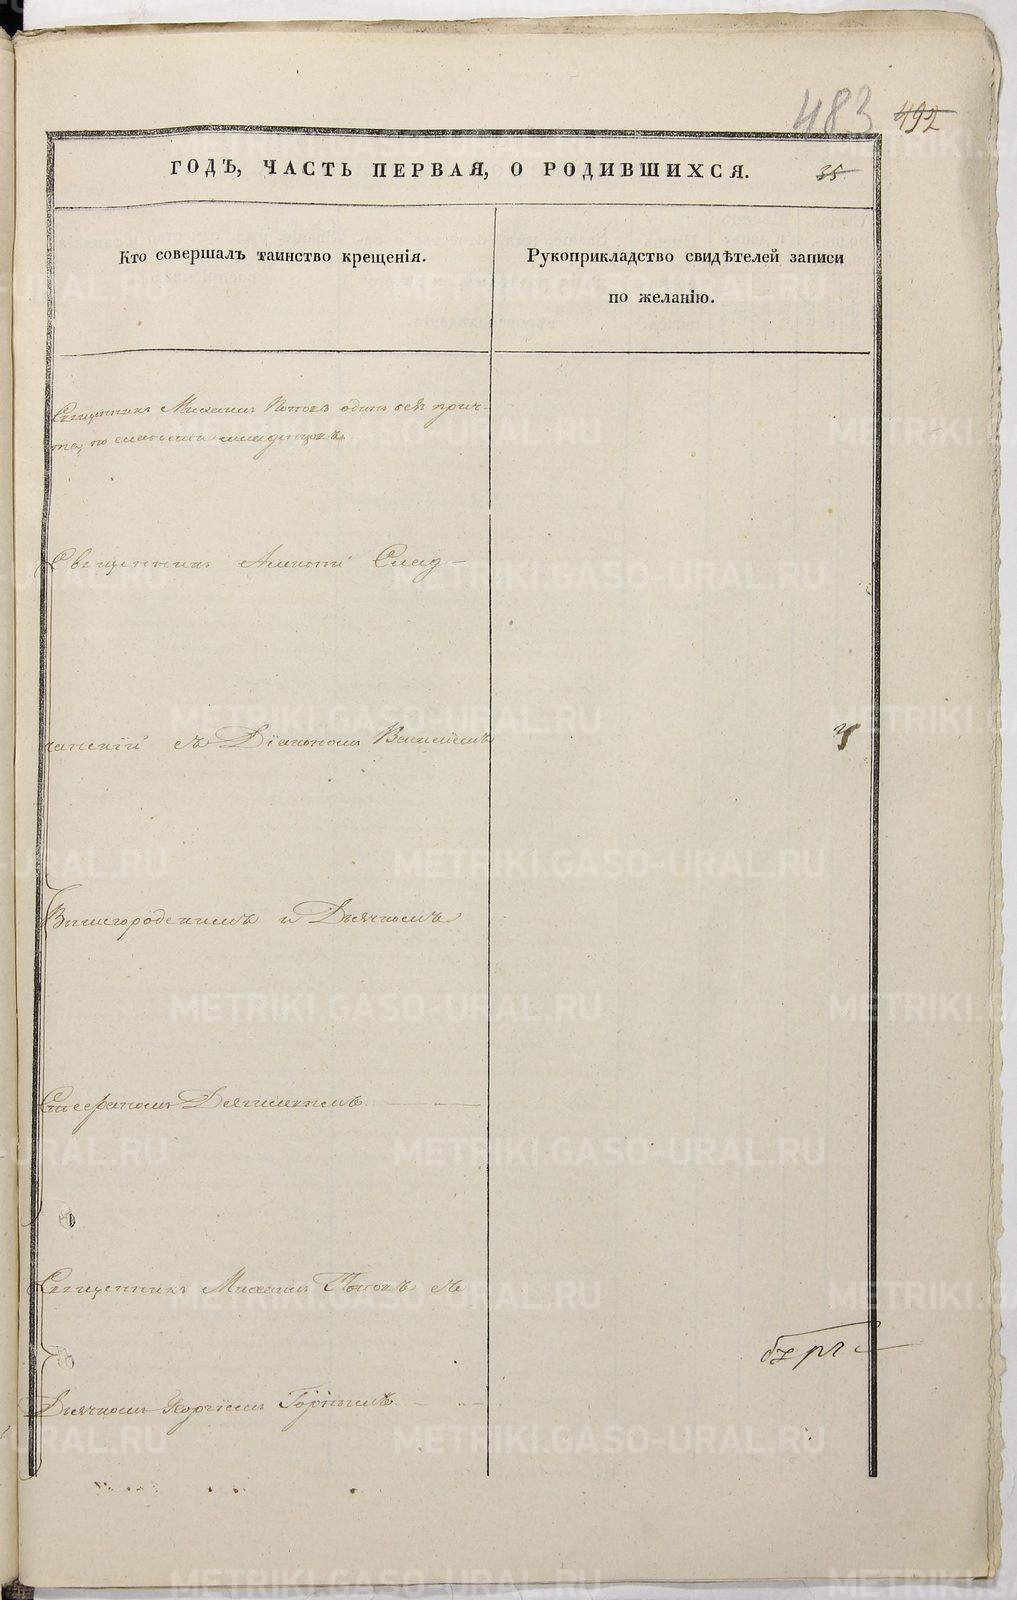 483 492
ГОДЪ, ЧАСТЬ ПЕРВАЯ, О РОДИВШИХСЯ. 35
Кто совершалъ таинство крещенія.
Рукоприкладство свидѣтелей записи
по желанію.
Священникъ Михаилъ Поповъ одинъ безъ прич-
та, по слабости младенцовъ
Священникъ Алексій Слад-
чанскій съ Діакономъ Василіемъ
Вышегородскимъ и Дьячкомъ
Стефаномъ
Священникъ Михаилъ Поповъ съ
Дьячкомъ Георгіемъ
METRIKI.GASO-URAL.RU